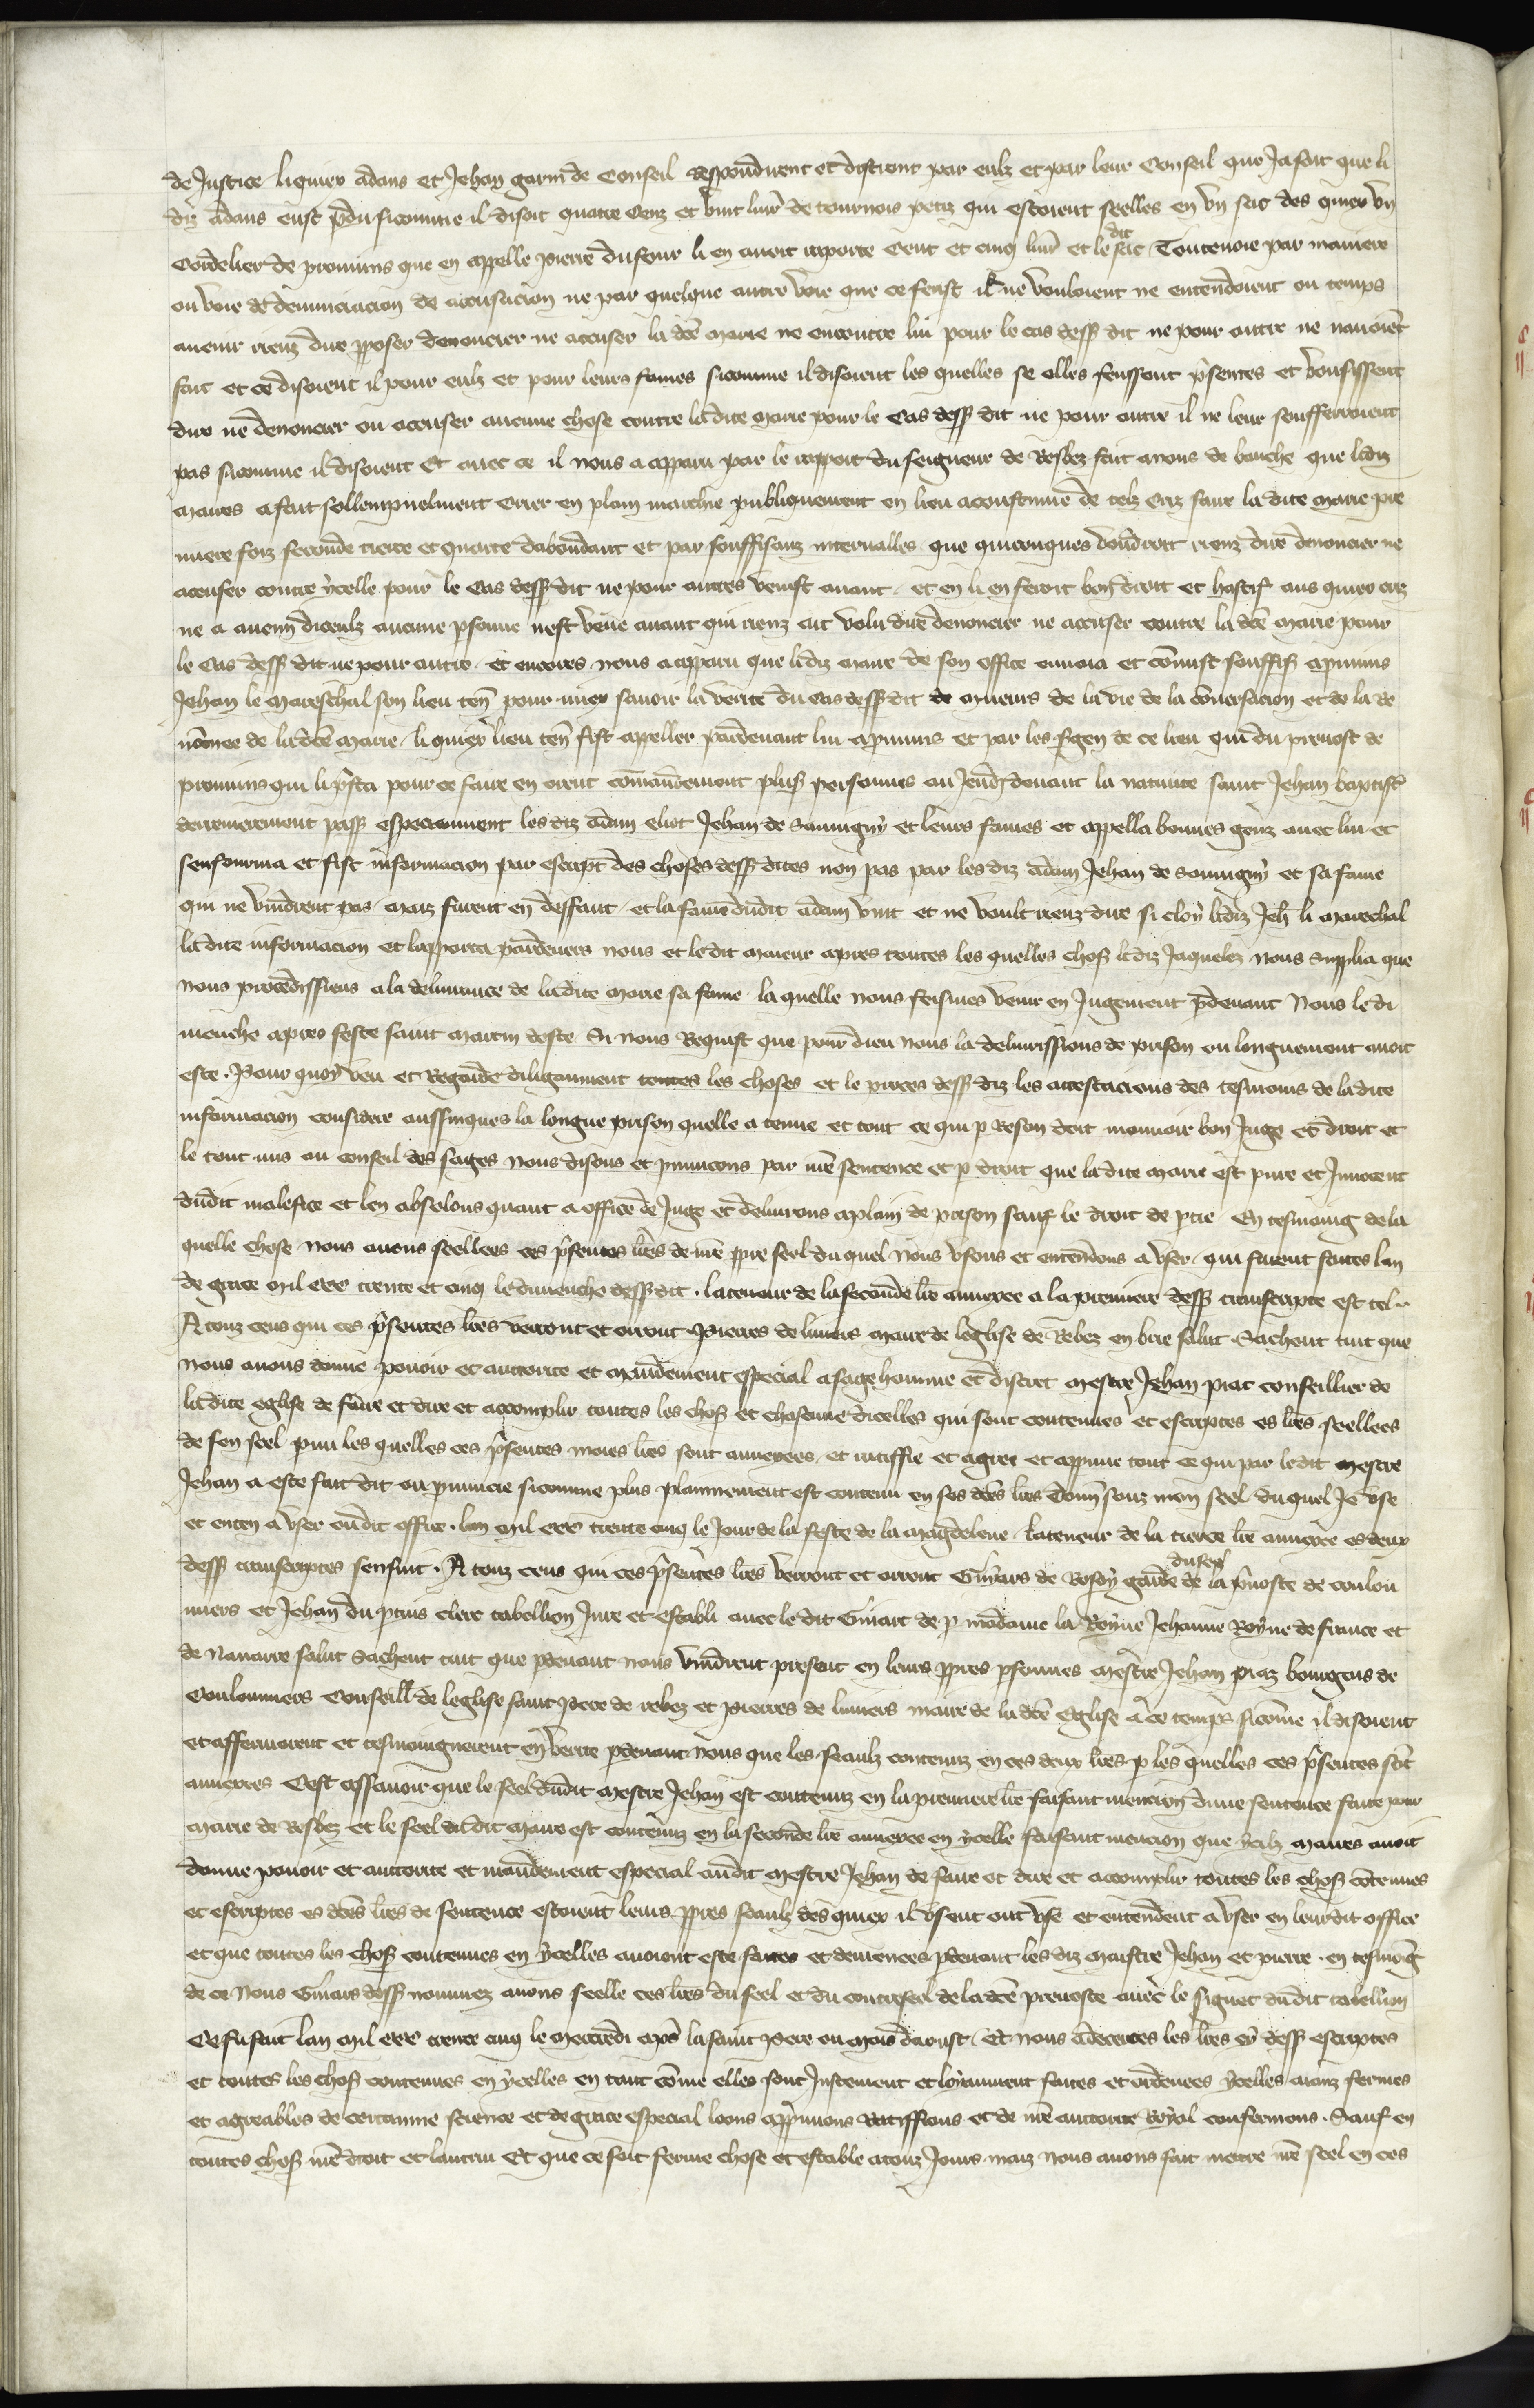 de Justice liquiex adans et Jehan garni de Conseil respondirent et distrent par eulz et par leur Conseil que Ja soit que li
diz adans eust pdu si comme il disoit quatre Cenz et vint liur de tournois petiz qui estoient seelles en vn sac des quiex vn
Cordelier de prouuins que en appelle pierre du four li en auoit raporte Cent et cinq liur et le dit sac Toutevoie par maniere
ou voie de denunciacion de accusacion ne par quelque autre voie que ce feust il ne vouloient ne entendoient ou temps
auenir rienz dire pposer denoncier ne accuser la dce marie ne encontre lui pour le cas dess dit ne pour autre ne nauoiet
fait et ce disoient il pour eulz et pour leurs fames si comme il disoient les quelles se elles feussent psentes et vousissent
dire ne denoncier ou accuser aucune chose contre la dite marie pour le Cas dess dit ne pour autre il ne leur soufferroient
pas si comme il disoient Et auec ce il nous a apparu par le rapport du seigneur de Resbez fait a nous de bouche que ledz
maires a fait sollempnelment crier en plain marchie publiquement en lieu acoustume de telz criz faire la dite marie pre
miere foiz seconde tierce et quarte dabondant et par souffisanz interualles que quiconques voudroit rienz dire denoncier ne
accuser contre ycelle pour le Cas dess dit ne pour autres venist auant et en li en feroit bon droit et hastif aus quiex criz
ne a aucun diceulz aucune psonne nest venue auant qui rienz ait volu dire denoncier ne accuser contre la dce marie pour
le Cas dess dit ne pour autre et encores nous a apparu que li diz maire de son office enuoia et comist souffis a prouuins
Jehan le Mareschal son lieu ten pour miex sauoir la verite du Cas dess dit de meurs de la vie de la conuersacion et de la re
nomee de la dce marie liquiex lieu ten fist appeller pardeuant lui a prouuins et par les sergen de ce lieu qui du preuost de
prouuins qui li psta pour ce faire en orent comandement plus personnes au Jeudi deuant la natiuite saint Jehan baptist
derrenierement pass especiaument les diz adam eliot Jehan de Sauuigny et leurs fames et appella bonnes genz auec lui et
senfourma et fist informacion par escript des choses dess dites non pas par les diz adam Jehan de Sauuigny et sa fame
qui ne vindrent pas maiz furent en deffaut et la fame dudit adam vint et ne voult rienz dire si cloy ledz Jeh li marechal
la dite informacion et lapporta pardeuers nous et le dit maieur apres toutes les quelles chos ledz Jaquelez nous supplia que
nous procedissiens a la deliurance de la dite marie sa fame la quelle nous feismes venir en Jugement pdeuant Nous le di
menche apres feste saint martin deste Si nous requist que pour dieu nous la deliurissions de prison ou longuement auoit
este Pour quoy veu et regarde diligaument toutes les choses et le proces dess diz les attestacions des tesmoins de la dite
informacion considere aussinques la longue prison quelle a tenue et tout ce qui p reson doit mouuoir bon Juge et droit et
le tout mis ou conseil des sages nous disons et pnuncons par nre sentence et p droit que la dite marie est pure et Innocent
dudit malefice et len absolons quant a office de Juge et deliurons a plain de prison sauf le droit de ptie En tesmoing de la
quelle chose nous auons seellees ces psentes lres de nre ppre seel du quel nous vsons et entendons a vser qui furent faites lan
de grace mil ccc trente et cinq le dimenche dess dit la teneur de la seconde lre annexee a la premiere dess transcripte est tele
A touz ceus qui ces psentes lres verront et orront Pierres de liuiers maire de leglise de Rebez en brie salut Sachent tuit que
nous auons donne pouoir et auctorite et mandement especial a sage homme et discret mestre Jehan piat conseillier de
la dite eglise de faire et dire et accomplir toutes les chos et chascune dicelles qui sont contenues et escriptes es lres seellees
de son seel pmi les quelles ces psentes moies lres sont annexees et ratiffie et agree et appreuue tout ce qui par le dit mestre
Jehan a este fait dit ou pnuncie si comme plus plainnement est contenu en ses dces lres Donn souz mon seel du quel Je vse
et enten a vser oudit office lan mil ccc trente cinq le Jour de la feste de la magdelene La teneur de la tierce lre annexee es deux
dess transcriptes sensuit A touz ceus qui ces psentes lres verront et orront Guiars de Rosoy garde du seel de la pruoste de coulou
miers et Jehan du ptuis clerc tabellion Jure et establi auec le dit Guiart de p madame la Royne Jehanne Royne de france et
de Nauarre salut Sachent tuit que pdeuant nous vindrent present en leurs ppres psonnes mestre Jehan piaz bourgeus de
Coulonmiers Conseill de leglise saint pere de rebez et pierres de liuiers maire de la dce Eglise a ce temps si come il disoient
et affermerent et tesmoignerent en verite pdeuant nous que les seaulz contenuz en ces deux lres p les quelles ces psentes sot
annexees Cest assauoir que le seel dudit mestre Jehan est contenuz en la premiere lre faisant mencion dune sentence faite pour
marie de Resbez et le seel du dit maire est contenuz en la seconde lre annexee en ycelle faisant mencion que ycilz maires auoit
donne pouoir et auctorite et mandement especial audit mestre Jehan de faire et dire et accomplir toutes les chos cotenues
et escriptes es dces lres de sentence estoient leurs ppres seaulz desquiex il vsent ont vse et entendent a vser en leur dit office
et que toutes les chos contenues en ycelles auoient este faites et demenees pdeuant les diz maistre Jehan et pierre en tesmog
de ce Nous Guiars dess nommez auons seelle ces lres du seel et du contreseel de la dce preuoste auec le signet du dit tabellion
Ce fu fait lan mil ccc trente cinq le mecredi apres la saint pere ou mois daoust Et nous adecertes les lres cy dess escriptes
et toutes les chos contenues en ycelles en tant come elles sont Justement et loyaument faites et ordenees ycelles aianz fermes
et agreables de certainne science et de grace especial loons appruuons Ratiffions et de nre auctorite Royal confermons Sauf en
toutes chos nre droit et lautrui Et que ce soit ferme chose et estable a touz Jours maiz nous auons fait mettre nre seel en ces